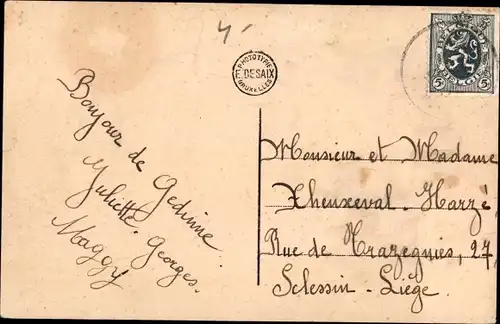 4-
PHOTOTYPIE
E. DESAIX
BRUXELLES
5 5
Bonjour de Gedinne.
Juliette. Georges.
Maggy
Monsieur et Madame
Theuxeval-Harzé
Rue de Trazegnies, 27,
Sclessin-Liège.